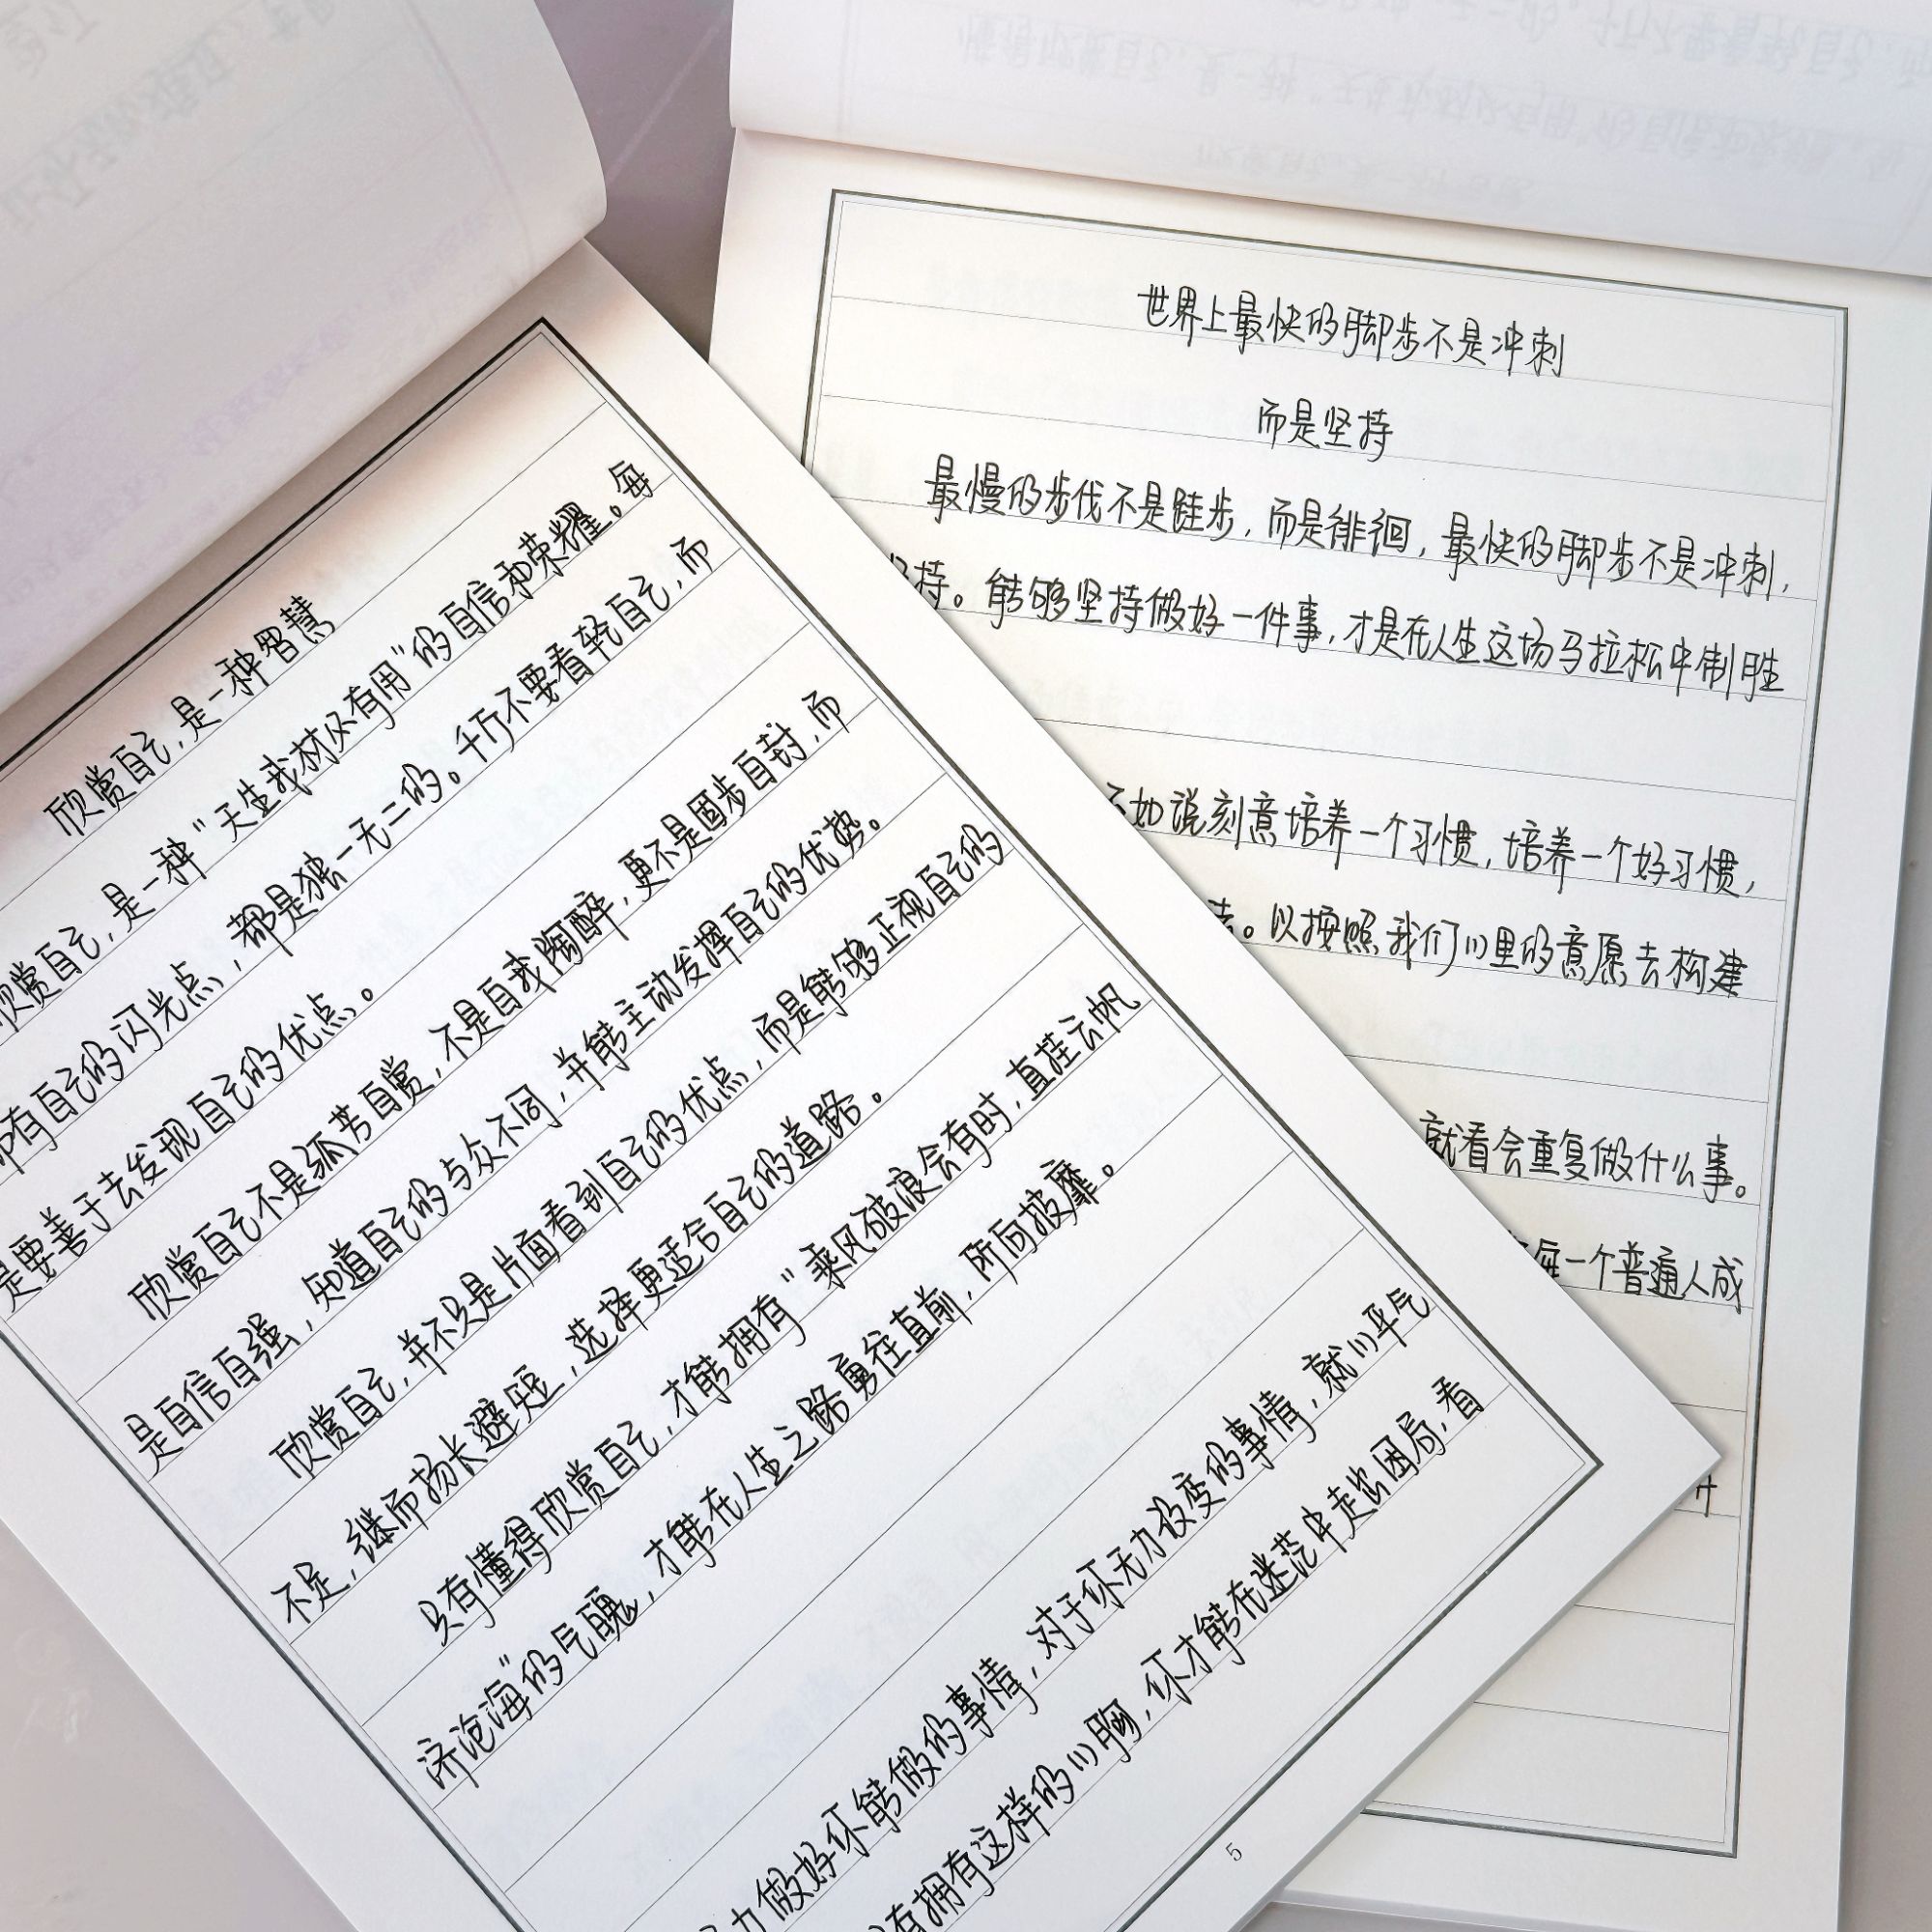 欣赏自己，是一种智慧
欣赏自己，是一种"天生我材必有用"的自信和荣耀。每
都有自己的闪光点，都是独一无二的。千万不要看轻自己，而
是要善于去发现自己的优点。
欣赏自己不是孤芳自赏，不是自我陶醉，更不是固步自封，而
是自信自强，知道自己的与众不同，并能主动发挥自己的优势。
欣赏自己，并不只是片面看到自己的优点，而是能够正视自己的
不足，继而扬长避短，选择更适合自己的道路。
只有懂得欣赏自己，才能拥有"乘风破浪会有时，直挂云帆
济沧海"的气魄，才能在人生之路勇往直前，所向披靡。
力做好你能做的事情，对于你无力改变的事情，就心平气
有拥有这样的心胸，你才能在迷茫中走出困局，看
5
世界上最快的脚步不是冲刺
而是坚持
最慢的步伐不是跬步，而是徘徊，最快的脚步不是冲刺，
持。能够坚持做好一件事，才是在人生这场马拉松中制胜
不如说刻意培养一个习惯，培养一个好习惯，
。以按照我们心里的意愿去构建
就看会重复做什么事。
每一个普通人成